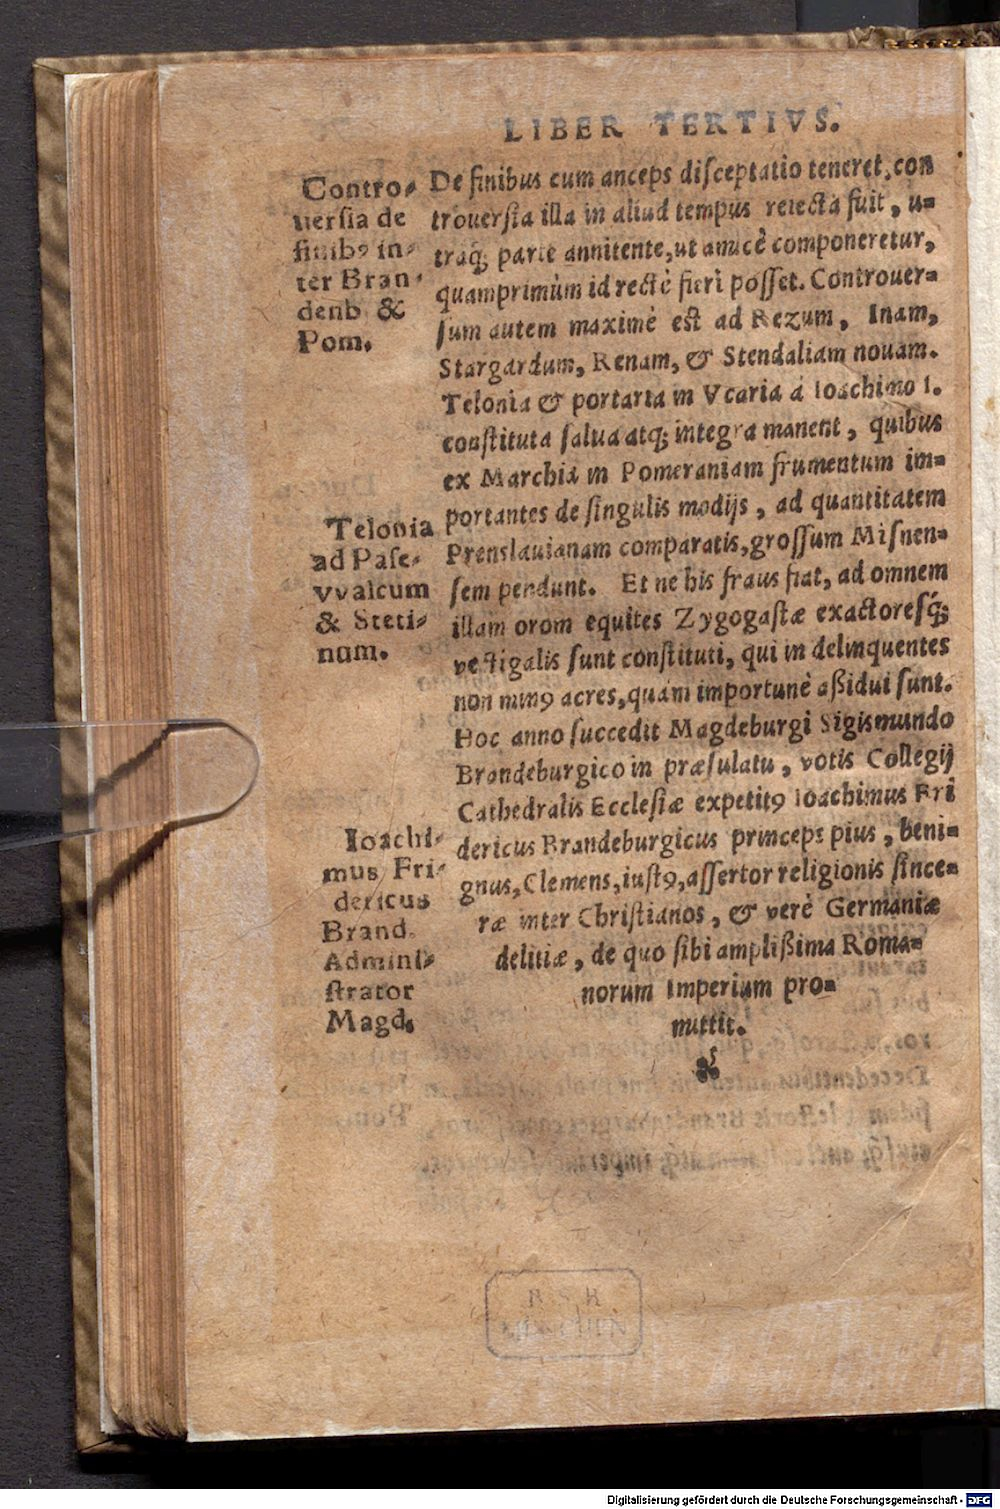 LIBER TERTIVS.
Contro-
uersia de
finibꝰ in-
ter Bran-
denb &
Pom.
De finibus cum anceps disceptatio teneret, con
trouersia illa in aliud tempus reiecta fuit, u-
traq; parte annitente, ut amicè componeretur,
quamprimùm id rectè fieri posset. Controuer-
sum autem maximè est ad Rezum, Inam,
Stargardum, Renam, & Stendaliam nouam.
Telonia & portaria in Vcaria à Ioachimo I.
constituta salua atq; integra manent, quibus
ex Marchia in Pomeraniam frumentum im-
portantes de singulis modijs, ad quantitatem
Prenslauianam comparatis, grossum Misnen-
sem pendunt. Et ne his fraus fiat, ad omnem
illam orom equites Zygogastæ exactoresq́;
vectigalis sunt constituti, qui in delinquentes
non minꝰ acres, quàm importunè aßidui sunt.
Hoc anno succedit Magdeburgi Sigismundo
Brandeburgico in præsulatu, votis Collegij
Cathedralis Ecclesiæ expetitꝰ Ioachimus Fri
dericus Brandeburgicus princeps pius, beni-
gnus, Clemens, iustꝰ, assertor religionis since-
ræ inter Christianos, & verè Germaniæ
delitiæ, de quo sibi amplißima Roma-
norum Imperium pro-
mittit.
Telonia
ad Pase-
vvalcum
& Steti-
num.
Ioachi-
mus Fri-
dericus
Brand.
Admini-
strator
Magd.
B S B
MÜNCHEN
Digitalisierung gefördert durch die Deutsche Forschungsgemeinschaft - DFG